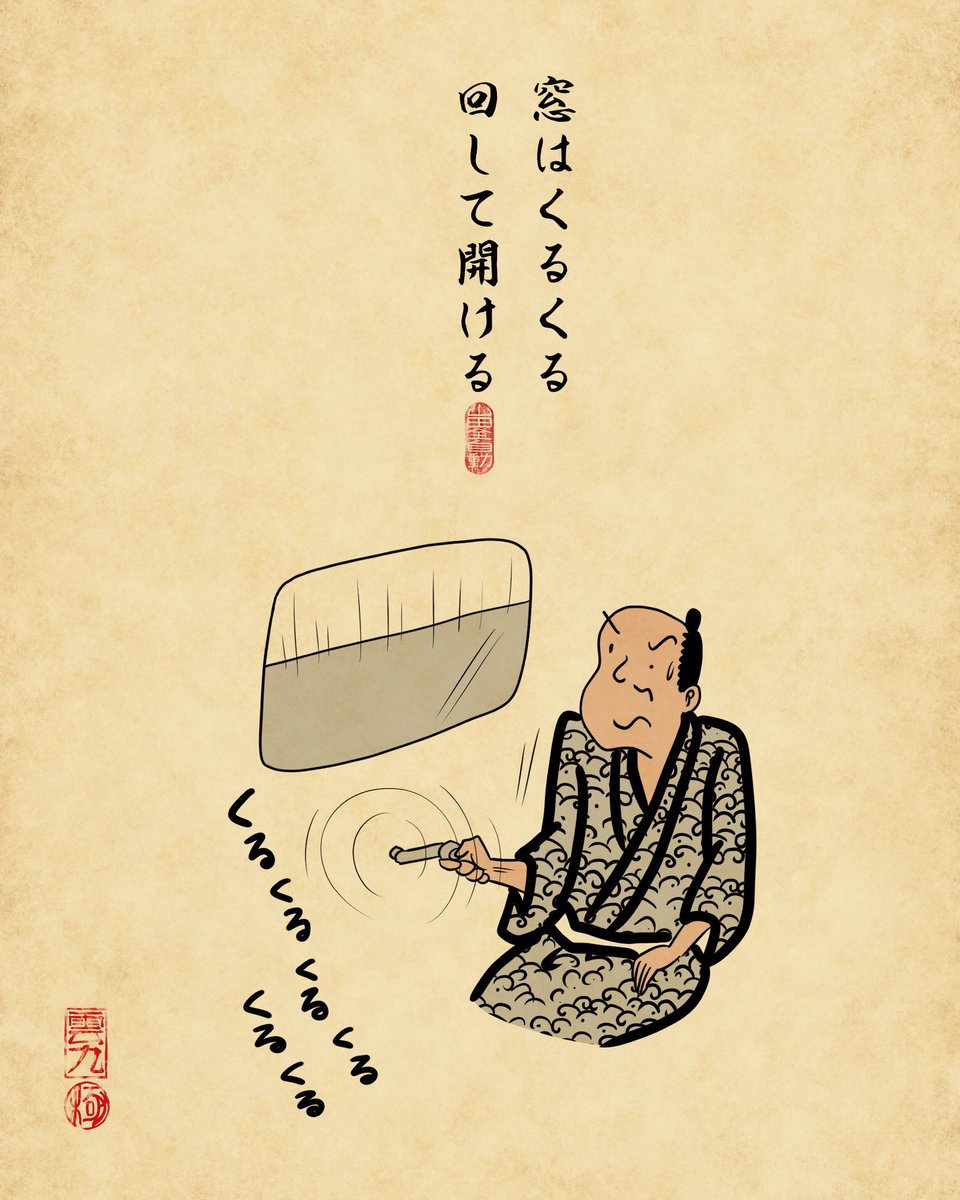 窓はくるくる
回して開ける
くるくるくるくる
くるくる